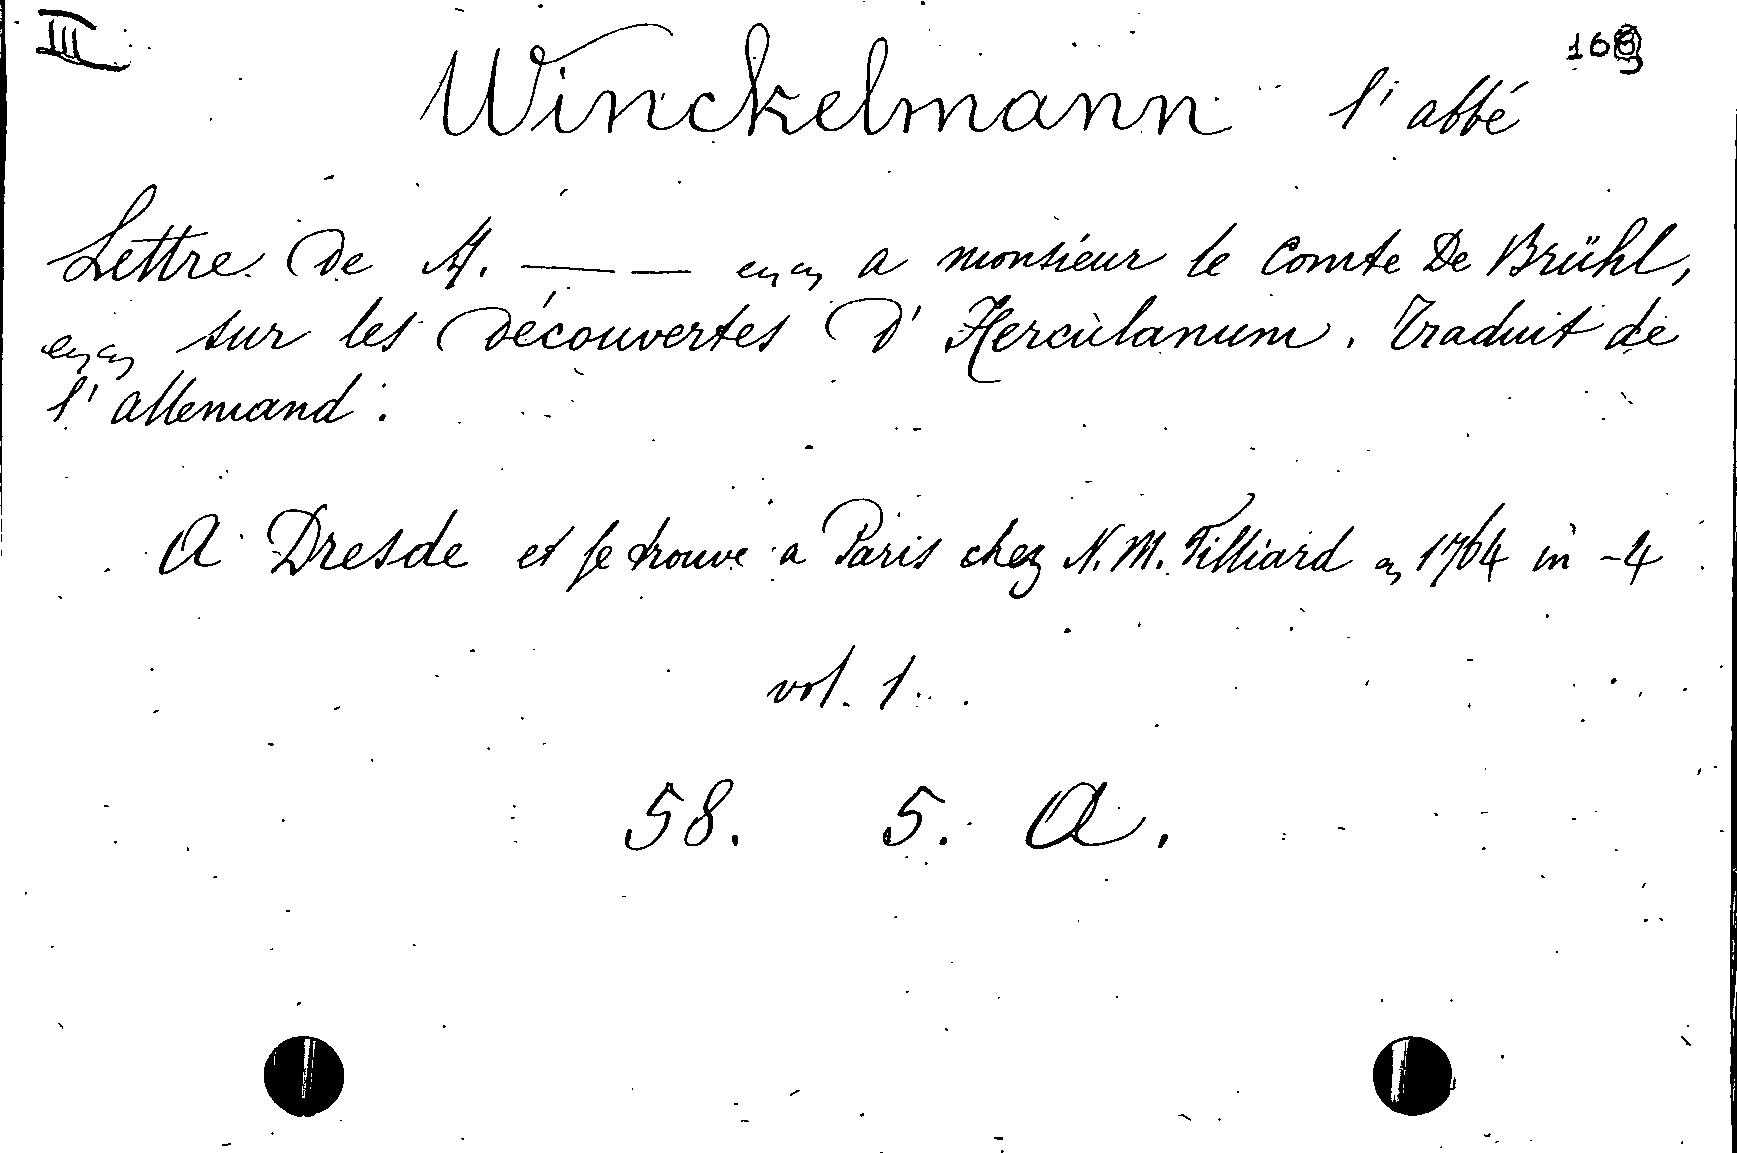 III
Winckelmann l'abbé
Lettre de M. — — a monsieur le Comte De Brühl,
sur les découvertes d'Herculanum. Traduit de
l'allemand.
A Dresde et se trouve a Paris chez N. M. Tilliard 1764 in-4
vol. 1.
58. 5. A.